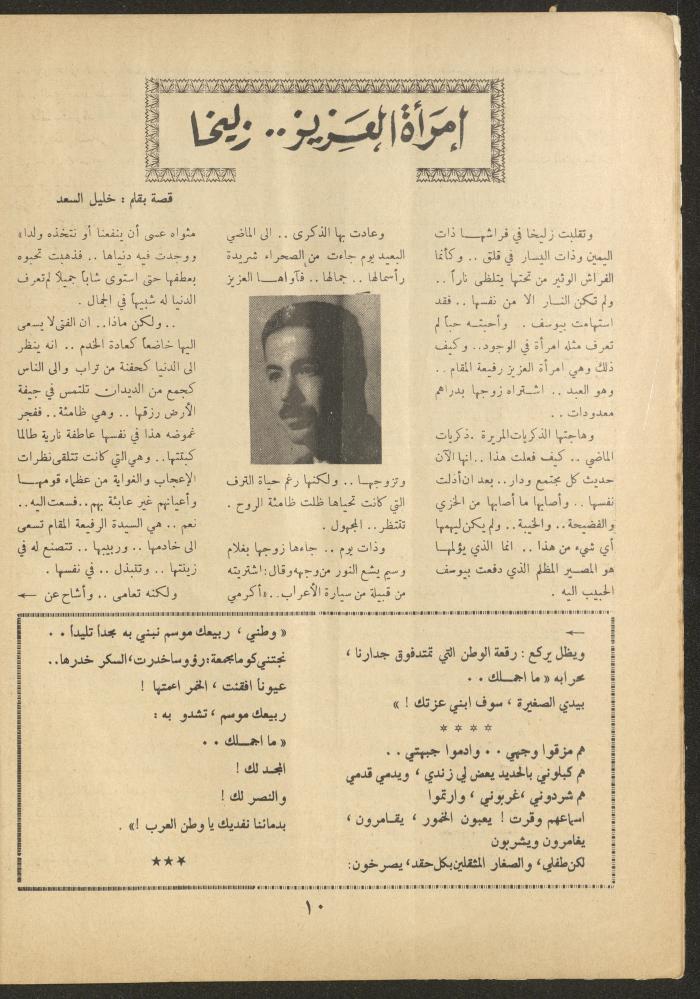 إمرأة العزيز.. زليخا
قصة بقلم : خليل السعد
وتقلبت زليخا في فراشها ذات
اليمين وذات اليسار في قلق .. وكأنما
الفراش الوثير من تحتها يتلظى ناراً ..
ولم تكن النار الا من نفسها .. فقد
استهامت بيوسف .. وأحبته حباً لم
تعرف مثله امرأة في الوجود.. وكيف
ذلك وهي امرأة العزيز رفيعة المقام ..
وهو العبد .. اشتراه زوجها بدراهم
معدودات ..
وهاجتها الذكريات المريرة .ذكريات
الماضي .. كيف فعلت هذا ..انها الآن
حديث كل مجتمع ودار.. بعد ان أذلت
نفسها .. وأصابها ما أصابها من الخزي
والفضيحة.. والخيبة.. ولم يكن ليهمها
أي شيء من هذا .. انما الذي يؤلمها
هو المصير المظلم الذي دفعت بيوسف
الحبيب اليه .
وعادت بها الذكرى .. الى الماضي
البعيد يوم جاءت من الصحراء شريدة
رأسمالها .. جمالها .. فآواها العزيز
وتزوجها .. ولكنها رغم حياة الترف
التي كانت تحياها ظلت ظامئة الروح .
تنتظر.. المجهول .
وذات يوم .. جاءها زوجها بغلام
وسيم يشع النور من وجهه وقال: اشتريته
من قبيلة من سيارة الأعراب..«أكرمي
مثواه عسى أن ينفعنا أو نتخذه ولدا»
ووجدت فيه دنياها .. فذهبت تحبوه
بعطفها حتى استوى شاباً جميلاً لم تعرف
الدنيا له شبيهاً في الجمال .
.. ولكن ماذا.. ان الفتى لا يسعى
اليها خاضعاً كعادة الخدم .. انه ينظر
الى الدنيا كحفنة من تراب والى الناس
كجمع من الديدان تلتمس في جيفة
الأرض رزقها .. وهي ظامئة.. ففجر
غموضه هذا في نفسها عاطفة نارية طالما
كبتتها.. وهي التي كانت تتلقى نظرات
الإعجاب والغواية من عظماء قومها
وأعيانهم غير عابئة بهم..فسعت اليه..
نعم .. هي السيدة الرفيعة المقام تسعى
الى خادمها .. وربيبها .. تتصنع له في
زينتها .. وتتبذل .. في نفسها .
ولكنه تعامى .. وأشاح عن ←
←
ويظل يركع : رقعة الوطن التي تمتد فوق جدارنا ،
محرابه « ما اجملك . .
بيدي الصغيرة ، سوف ابني عزتك ! »
* * * *
هم مزقوا وجهي . . وادموا جبهتي . .
هم كبلوني بالحديد يعض لي زندي ، ويدمي قدمي
هم شردوني ،غربوني ، وارتموا
اسماعهم وقرت ! يعبون الخمور ، يقامرون ،
يغامرون ويشربون
لكن طفلي، والصغار المثقلين بكل حقد، يصرخون:
« وطني ، ربيعك موسم نبني به مجداً تليداً . .
عيوناً افقئت ، الخمر اعمتها !
ربيعك موسم ، تشدو به :
« ما اجملك . .
المجد لك !
والنصر لك !
بدمائنا نفديك يا وطن العرب !» .
***
١٠